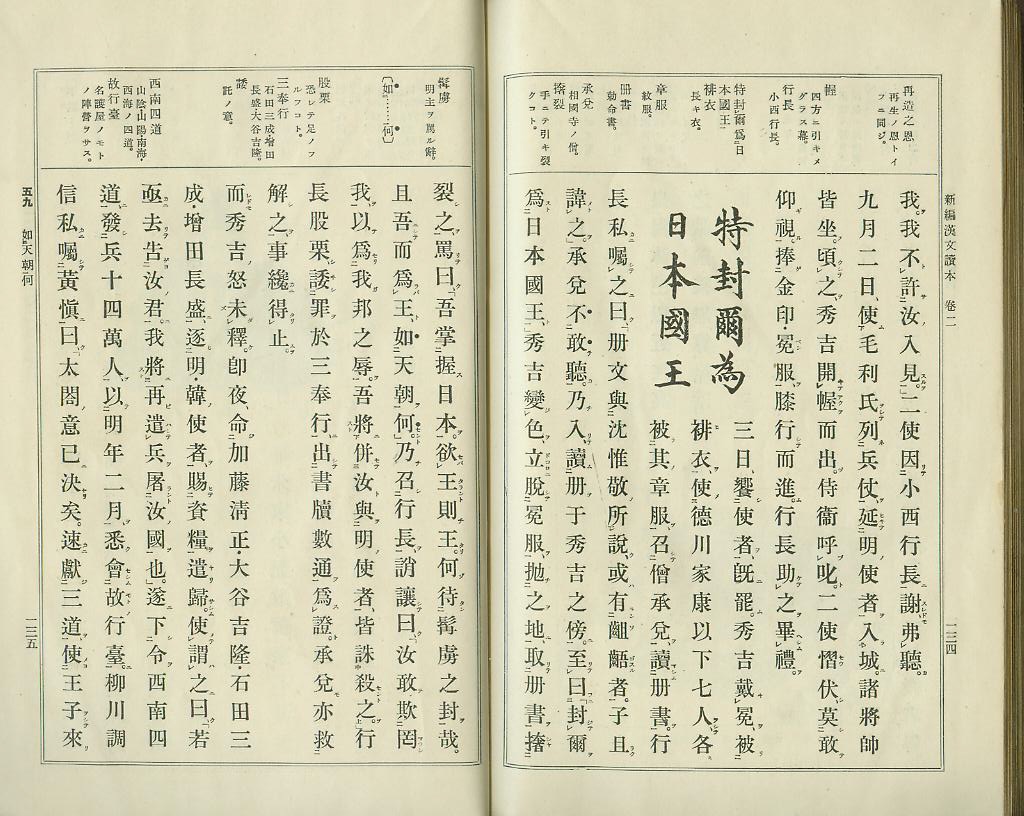 新編漢文讀本　卷二
一三四
再造之恩
再生ノ恩トイ
フニ同ジ。
幄
四方ニ引キメ
グラス幕。
行長
小西行長。
特封爾爲日
本國王
緋衣
長キ衣。
章服
紋服。
册書
勅命書。
承兌
相國寺ノ僧。
撦裂
手ニテ引キ裂
クコト。
我。我不許汝入見。二使因小西行長謝、弗聽。
九月二日、使毛利氏列兵仗、延明使者入城。諸將帥
皆坐。頃之、秀吉開幄而出。侍衞呼叱。二使慴伏、莫敢
仰視、捧金印・冕服、膝行而進。行長助之畢禮。
特封爾為
日本國王
三日、饗使者。既罷。秀吉戴冕、被
緋衣、使德川家康以下七人、各
被其章服、召僧承兌、讀册書。行
長私囑之曰、册文與沈惟敬所說、或有齟齬者。子且
諱之。承兌不敢聽。乃入、讀册于秀吉之傍。至曰封爾
爲日本國王、秀吉變色、立脫冕服、抛之地、取册書撦
髯虜
明主ヲ罵ル辭。
〔如……何〕
股栗
恐レテ足ノフ
ルフコト。
三奉行
石田三成・增田
長盛・大谷吉隆。
諉
託ノ意。
西南四道
山陰山陽南海・
西海ノ四道。
故行臺
名護屋ノモト
ノ陣營ヲサス。
裂之、罵曰、「吾掌握日本。欲王則王。何待髯虜之封哉。
且吾而爲王、如天朝何。」乃召行長、誚讓曰、「汝敢欺罔
我、以爲我邦之辱。吾將併汝與明使者、皆誅殺之。」行
長股栗、諉罪於三奉行、出書牘數通爲證。承兌亦救
解之、事纔得止。
而秀吉怒未釋。卽夜、命加藤淸正・大谷吉隆・石田三
成・增田長盛、逐明・韓使者、賜資糧遣歸。使謂之曰、「若
亟去吿汝君。我將再遣兵屠汝國也。」遂下令西南四
道、發兵十四萬人、以明年二月、悉會故行臺。柳川調
信私囑黃愼曰、「太閤意已決矣。速獻三道、使王子來
五九　如天朝何
一三五